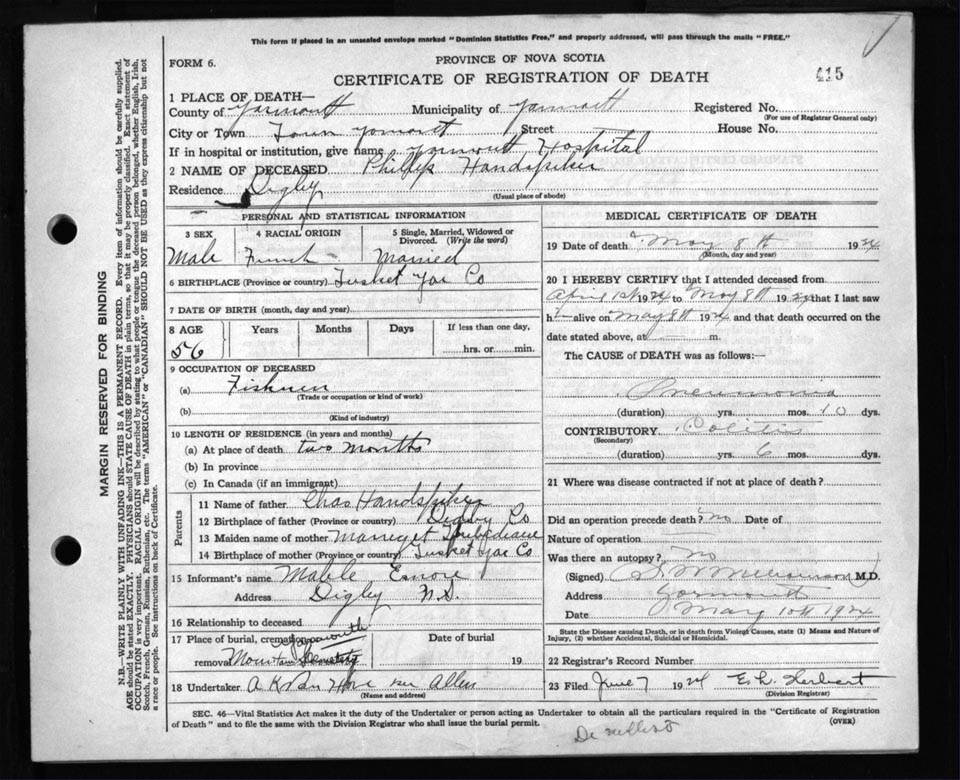 This form if placed in an unsealed envelope marked "Dominion Statistics Free," and properly addressed, will pass through the mails "FREE."
FORM 6.
PROVINCE OF NOVA SCOTIA
CERTIFICATE OF REGISTRATION OF DEATH
415
1 PLACE OF DEATH—
County of Yarmouth Municipality of Yarmouth Registered No.
(For use of Registrar General only)
City or Town Town Yarmouth Street House No.
If in hospital or institution, give name Yarmouth Hospital
2 NAME OF DECEASED Phillip Handspiker
Residence Digby
(Usual place of abode)
PERSONAL AND STATISTICAL INFORMATION
3 SEX 4 RACIAL ORIGIN 5 Single, Married, Widowed or Divorced. (Write the word)
Male French Married
6 BIRTHPLACE (Province or country) Tusket Yar Co
7 DATE OF BIRTH (month, day and year)
8 AGE Years Months Days If less than one day,
56 hrs. or min.
9 OCCUPATION OF DECEASED
(a)
(Trade or occupation or kind of work)
(b)
(Kind of industry)
10 LENGTH OF RESIDENCE (in years and months)
(a) At place of death two months
(b) In province
(c) In Canada (if an immigrant)
Parents
11 Name of father Chas Handspiker
12 Birthplace of father (Province or country) Digby Co
13 Maiden name of mother
14 Birthplace of mother (Province or country) Tusket Yar Co
15 Informant's name Mable
Address Digby N.S.
16 Relationship to deceased
17 Place of burial, cremation or removal Yarmouth Mountain Cemetery
Date of burial 19
18 Undertaker Allen
(Name and address)
MEDICAL CERTIFICATE OF DEATH
19 Date of death May 8th 1924
(Month, day and year)
20 I HEREBY CERTIFY that I attended deceased from
April 1924 to May 8th 1924 that I last saw
h alive on May 8th 1924 and that death occurred on the
date stated above, at m.
The CAUSE of DEATH was as follows:—
Pneumonia
(duration) yrs. mos. 10 dys.
CONTRIBUTORY Colitis
(Secondary)
(duration) yrs. 6 mos. dys.
21 Where was disease contracted if not at place of death?
Did an operation precede death? no Date of
Nature of operation
Was there an autopsy? No
(Signed) M.D.
Address Yarmouth
Date May 10th 1924
State the Disease causing Death, or in death from Violent Causes, state (1) Means and Nature of Injury, (2) whether Accidental, Suicidal or Homicidal.
22 Registrar's Record Number
23 Filed June 7 1924 Herbert
(Division Registrar)
SEC. 46—Vital Statistics Act makes it the duty of the Undertaker or person acting as Undertaker to obtain all the particulars required in the "Certificate of Registration
of Death" and to file the same with the Division Registrar who shall issue the burial permit. (OVER)
MARGIN RESERVED FOR BINDING
N.B.—WRITE PLAINLY WITH UNFADING INK—THIS IS A PERMANENT RECORD. Every item of information should be carefully supplied.
AGE should be stated EXACTLY. PHYSICIANS should STATE CAUSE OF DEATH in plain terms, so that it may be properly classified. Exact statement of
OCCUPATION is very important. RACIAL ORIGIN will be described by stating to what people or tongue the deceased person belonged, whether English, Irish,
Scotch, French, German, Russian, Ruthenian, etc. The terms "AMERICAN" or "CANADIAN" SHOULD NOT BE USED as they express citizenship but not
a race or people. See instructions on back of Certificate.